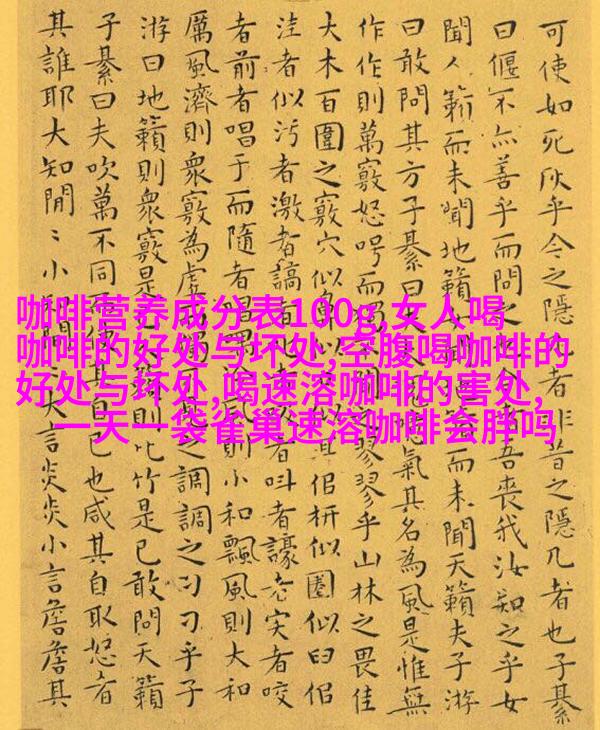 可使如死灰乎今之隱几者非昔之隱几者也子綦
曰偃不亦善乎而問之吾喪我汝知之乎女
聞人籟而未聞地籟女聞地籟而未聞天籟夫子游
曰敢問其方子綦曰夫噫氣其名為風是惟無
作作則萬竅怒呺而獨聞翏翏乎山林之畏佳
大木百圍之竅穴似鼻似枅似圈似臼似
洼者似污者激者謞者叫者譹者宎者咬
者前者唱于而隨者唱風則小和飄風則大和
厲風濟則衆竅為虛之調調之刁刁乎子
游曰地籟則衆竅是已則比竹是已敢問天籟
子綦曰夫吹萬不同而使其自已也咸其自取怒者
其誰耶大知閒〻小知閒〻大言炎炎小言詹詹其
咖啡营养成分表100g,女人喝
咖啡的好处与坏处,空腹喝咖啡的
好处与坏处,喝速溶咖啡的害处,
一天一袋雀巢速溶咖啡会胖吗